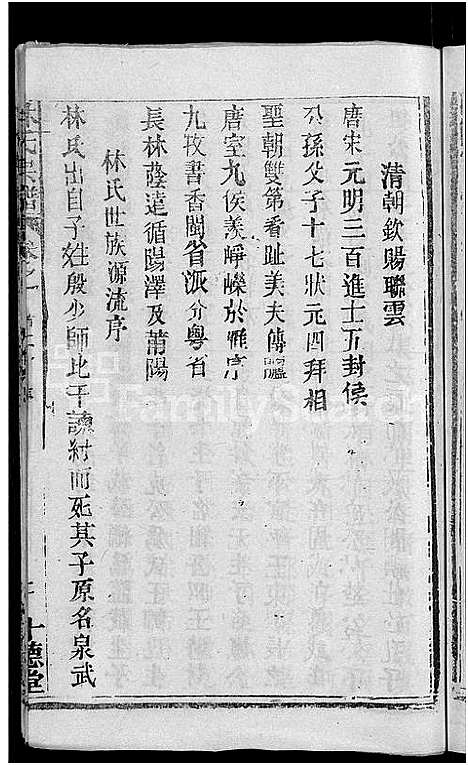 清朝欽賜聯雲
唐宋元明三百進士五封侯
公孫父子十七狀元四拜相
聖朝雙第看趾美夫傳臚
唐室九侯羨崢嶸於雁序
九牧書香閩省派分粵省
長林蔭遠循陽澤及莆陽
林氏世族源流序
林氏出自子姓殷少師比干諫紂而死其子原名泉武
林氏宗譜 卷之一
十德堂
FamilySearch